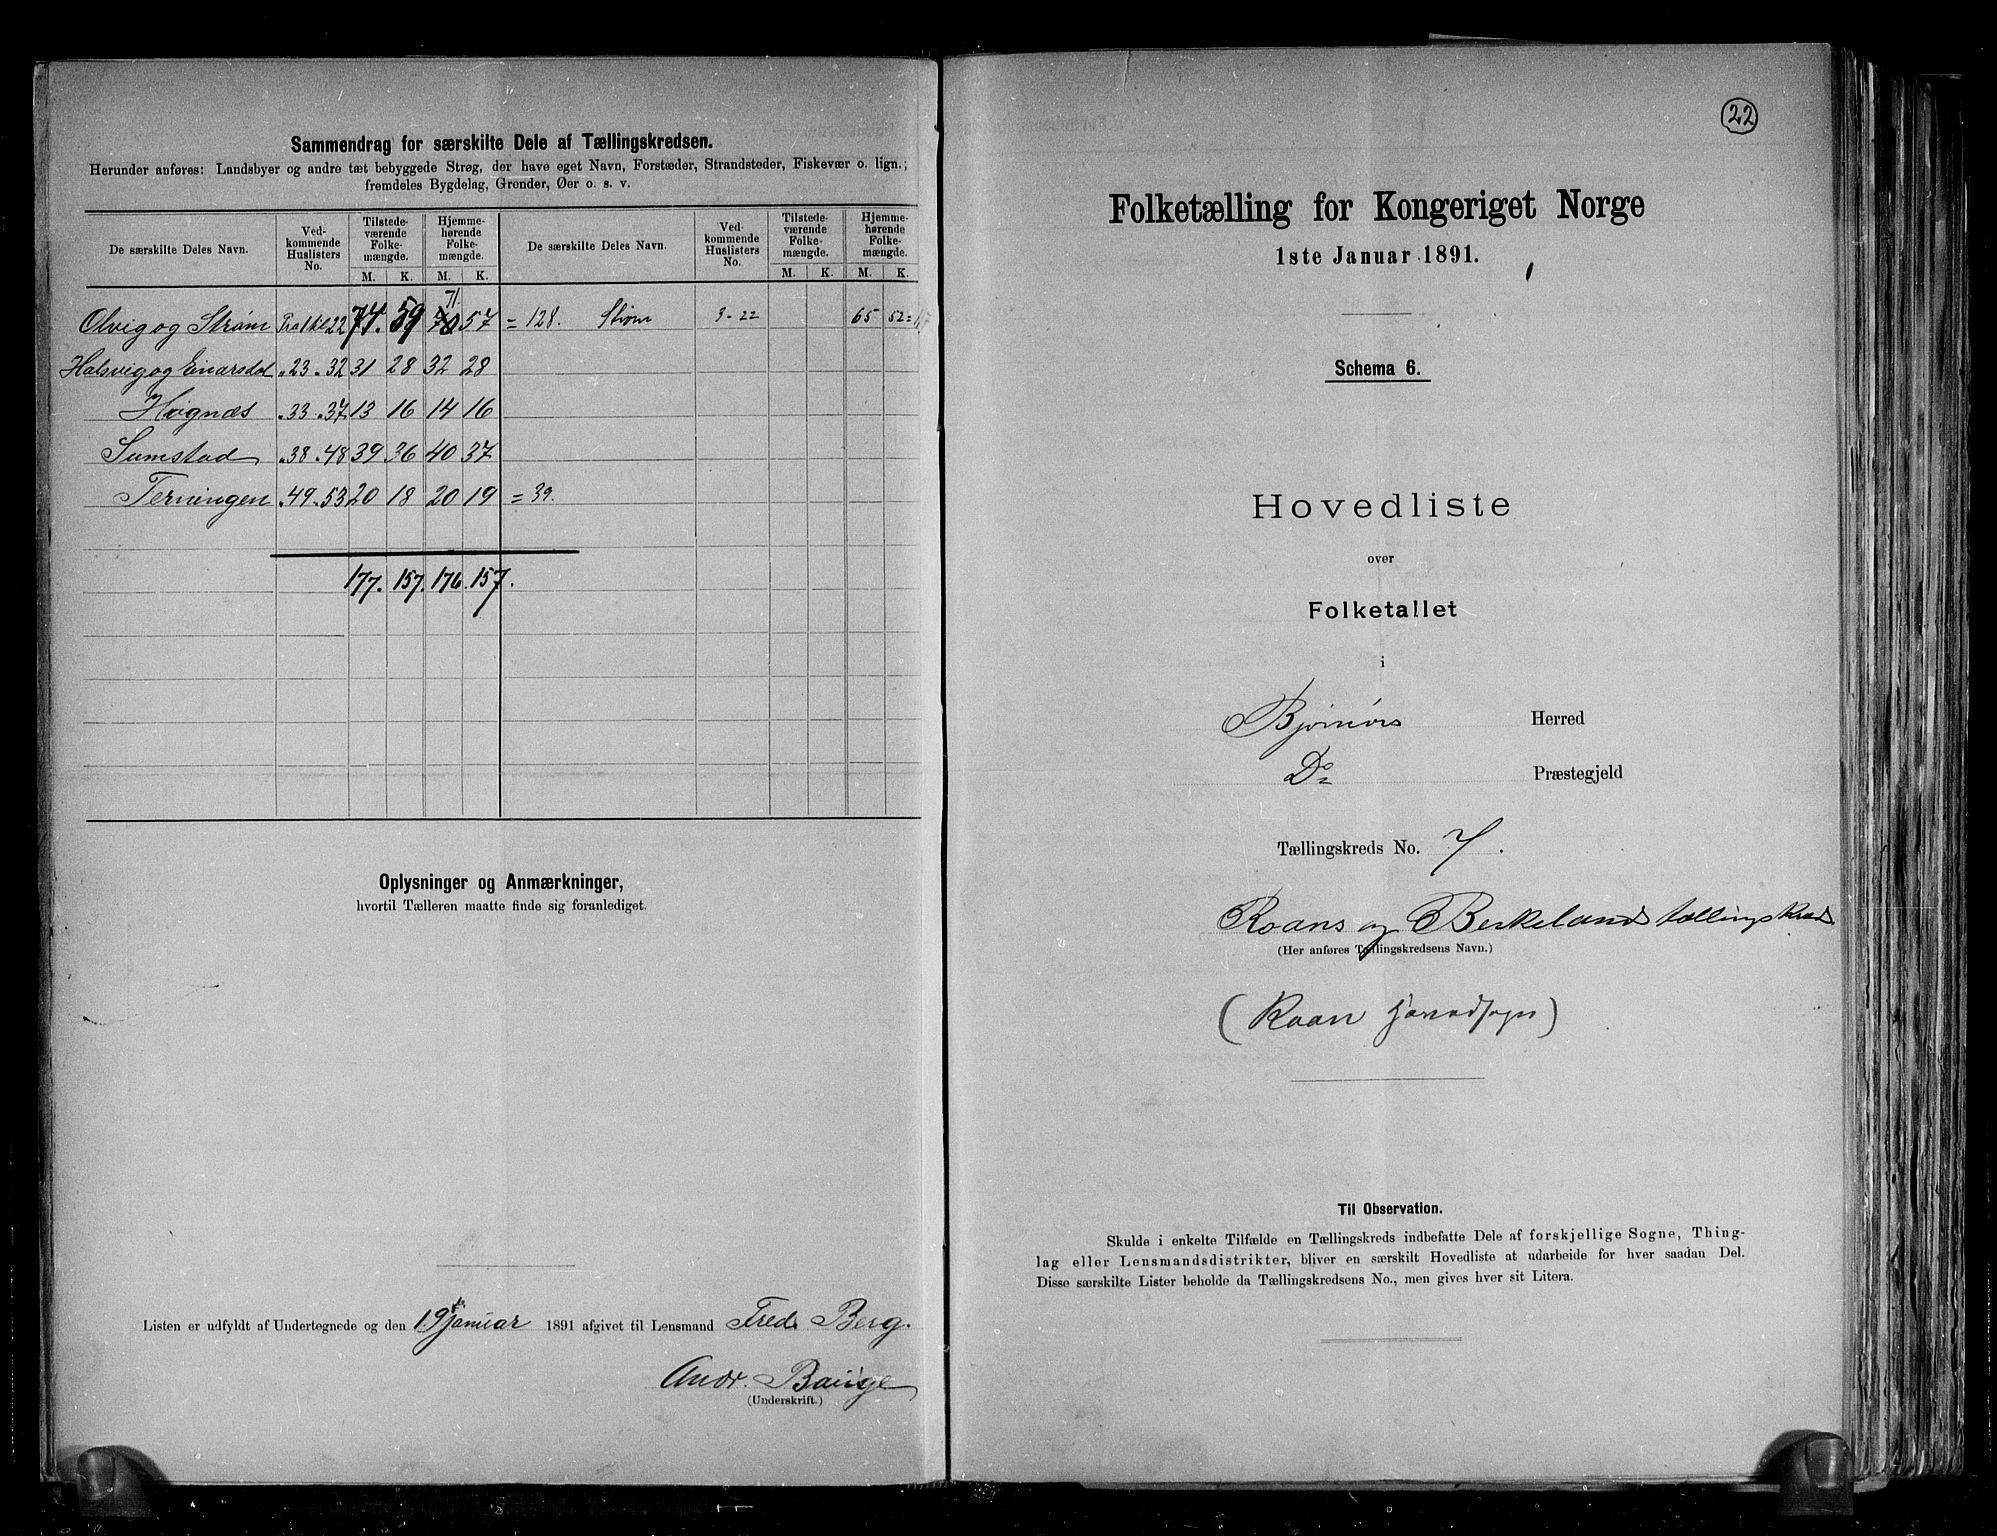 Sammendrag for særskilte Dele af Tællingskredsen.
Herunder anføres: Landsbyer og andre tæt bebyggede Strøg, der have eget Navn, Forstæder, Strandsteder, Fiskevær o. lign.;
fremdeles Bygdelag, Grender, Øer o. s. v.
De særskilte Deles Navn. Ved-kommende Huslisters No. Tilstede-værende Folke-mængde. Hjemme-hørende Folke-mængde. De særskilte Deles Navn. Ved-kommende Huslisters No. Tilstede-værende Folke-mængde. Hjemme-hørende Folke-mængde.
M. K. M. K. M. K. M. K.
71
Olvig og Strøm 22 74. 59 70 57 = 128. Strøm 3-22 65 52 =
Halsvig og Einarsdal " 23 " 32 31 28 32 28
Hognæs " 33 " 37 13 16 14 16
Sumstad " 38 " 48 39 36 40 37
Terningen " 49 " 53 20 18 20 19 = 39.
177. 157. 176. 157.
Oplysninger og Anmærkninger,
hvortil Tælleren maatte finde sig foranlediget.
Listen er udfyldt af Undertegnede og den 19 januar 1891 afgivet til Lensmand Fred. Berg.
Andr. Bauge
(Underskrift.)
22
Folketælling for Kongeriget Norge
1ste Januar 1891.
Schema 6.
Hovedliste
over
Folketallet
i
Bjørnørs Herred
Do Præstegjeld
Tællingskreds No. 7.
Roans og Berkelands tællingskreds
(Her anføres Tællingskredsens Navn.)
(Roan Hovedsogn)
Til Observation.
Skulde i enkelte Tilfælde en Tællingskreds indbefatte Dele af forskjellige Sogne, Thing-
lag eller Lensmandsdistrikter, bliver en særskilt Hovedliste at udarbeide for hver saadan Del.
Disse særskilte Lister beholde da Tællingskredsens No., men gives hver sit Litera.